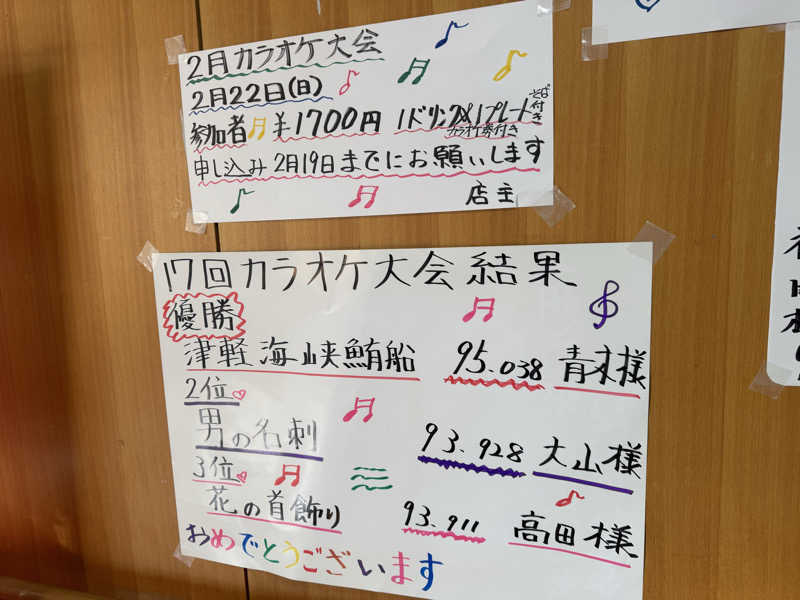 2月カラオケ大会
2月22日(日)
参加者 ¥1700円 1ドリンク&1プレート そば付き
カラオケ券付き
申し込み 2月19日までにお願いします
店主
17回カラオケ大会結果
優勝
津軽海峡鮪船 95.038 青木様
2位
男の名刺 93.928 大山様
3位
花の首飾り 93.911 高田様
おめでとうございます